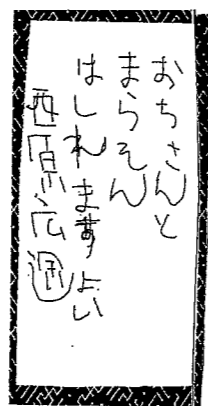 おちさんと
まらそん
はしれますよい
西原広週